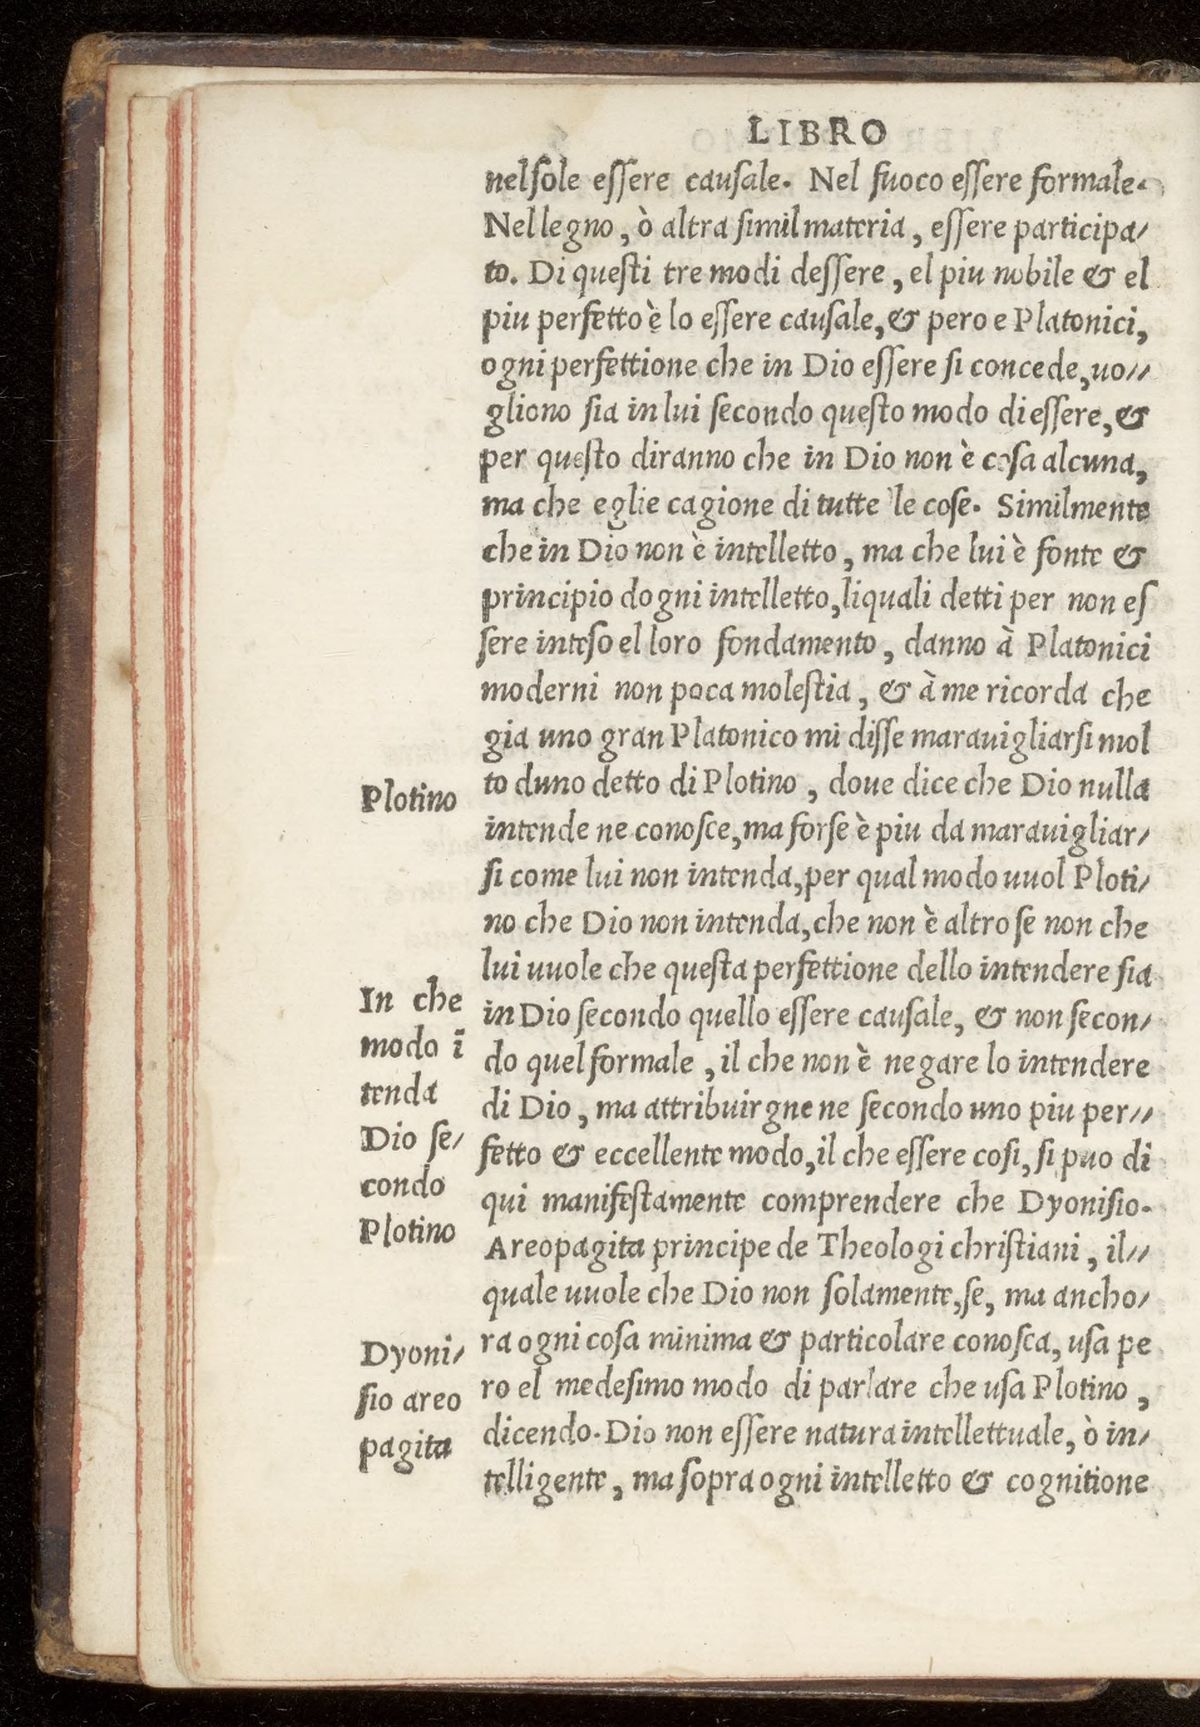 LIBRO
nel sole essere causale. Nel fuoco essere formale.
Nel legno, ò altra simil materia, essere participa/
to. Di questi tre modi dessere, el piu nobile & el
piu perfetto è lo essere causale, & pero e Platonici,
ogni perfettione che in Dio essere si concede, uo//
gliono sia in lui secondo questo modo di essere, &
per questo diranno che in Dio non è cosa alcuna,
ma che eglie cagione di tutte le cose. Similmente
che in Dio non è intelletto, ma che lui è fonte &
principio dogni intelletto, liquali detti per non es
sere inteso el loro fondamento, danno à Platonici
moderni non poca molestia, & à me ricorda che
gia uno gran Platonico mi disse marauigliarsi mol
to duno detto di Plotino, doue dice che Dio nulla
intende ne conosce, ma forse è piu da marauigliar/
si come lui non intenda, per qual modo uuol Ploti/
no che Dio non intenda, che non è altro se non che
lui uuole che questa perfettione dello intendere sia
in Dio secondo quello essere causale, & non secon/
do quel formale, il che non è negare lo intendere
di Dio, ma attribuirgnene secondo uno piu per//
fetto & eccellente modo, il che essere cosi, si puo di
qui manifestamente comprendere che Dyonisio.
Areopagita principe de Theologi christiani, il//
quale uuole che Dio non solamente, se, ma ancho/
ra ogni cosa minima & particolare conosca, usa pe
ro el medesimo modo di parlare che usa Plotino,
dicendo. Dio non essere natura intellettuale, ò in/
telligente, ma sopra ogni intelletto & cognitione
Plotino
In che
modo ĩ
tenda
Dio se/
condo
Plotino
Dyoni/
sio areo
pagita